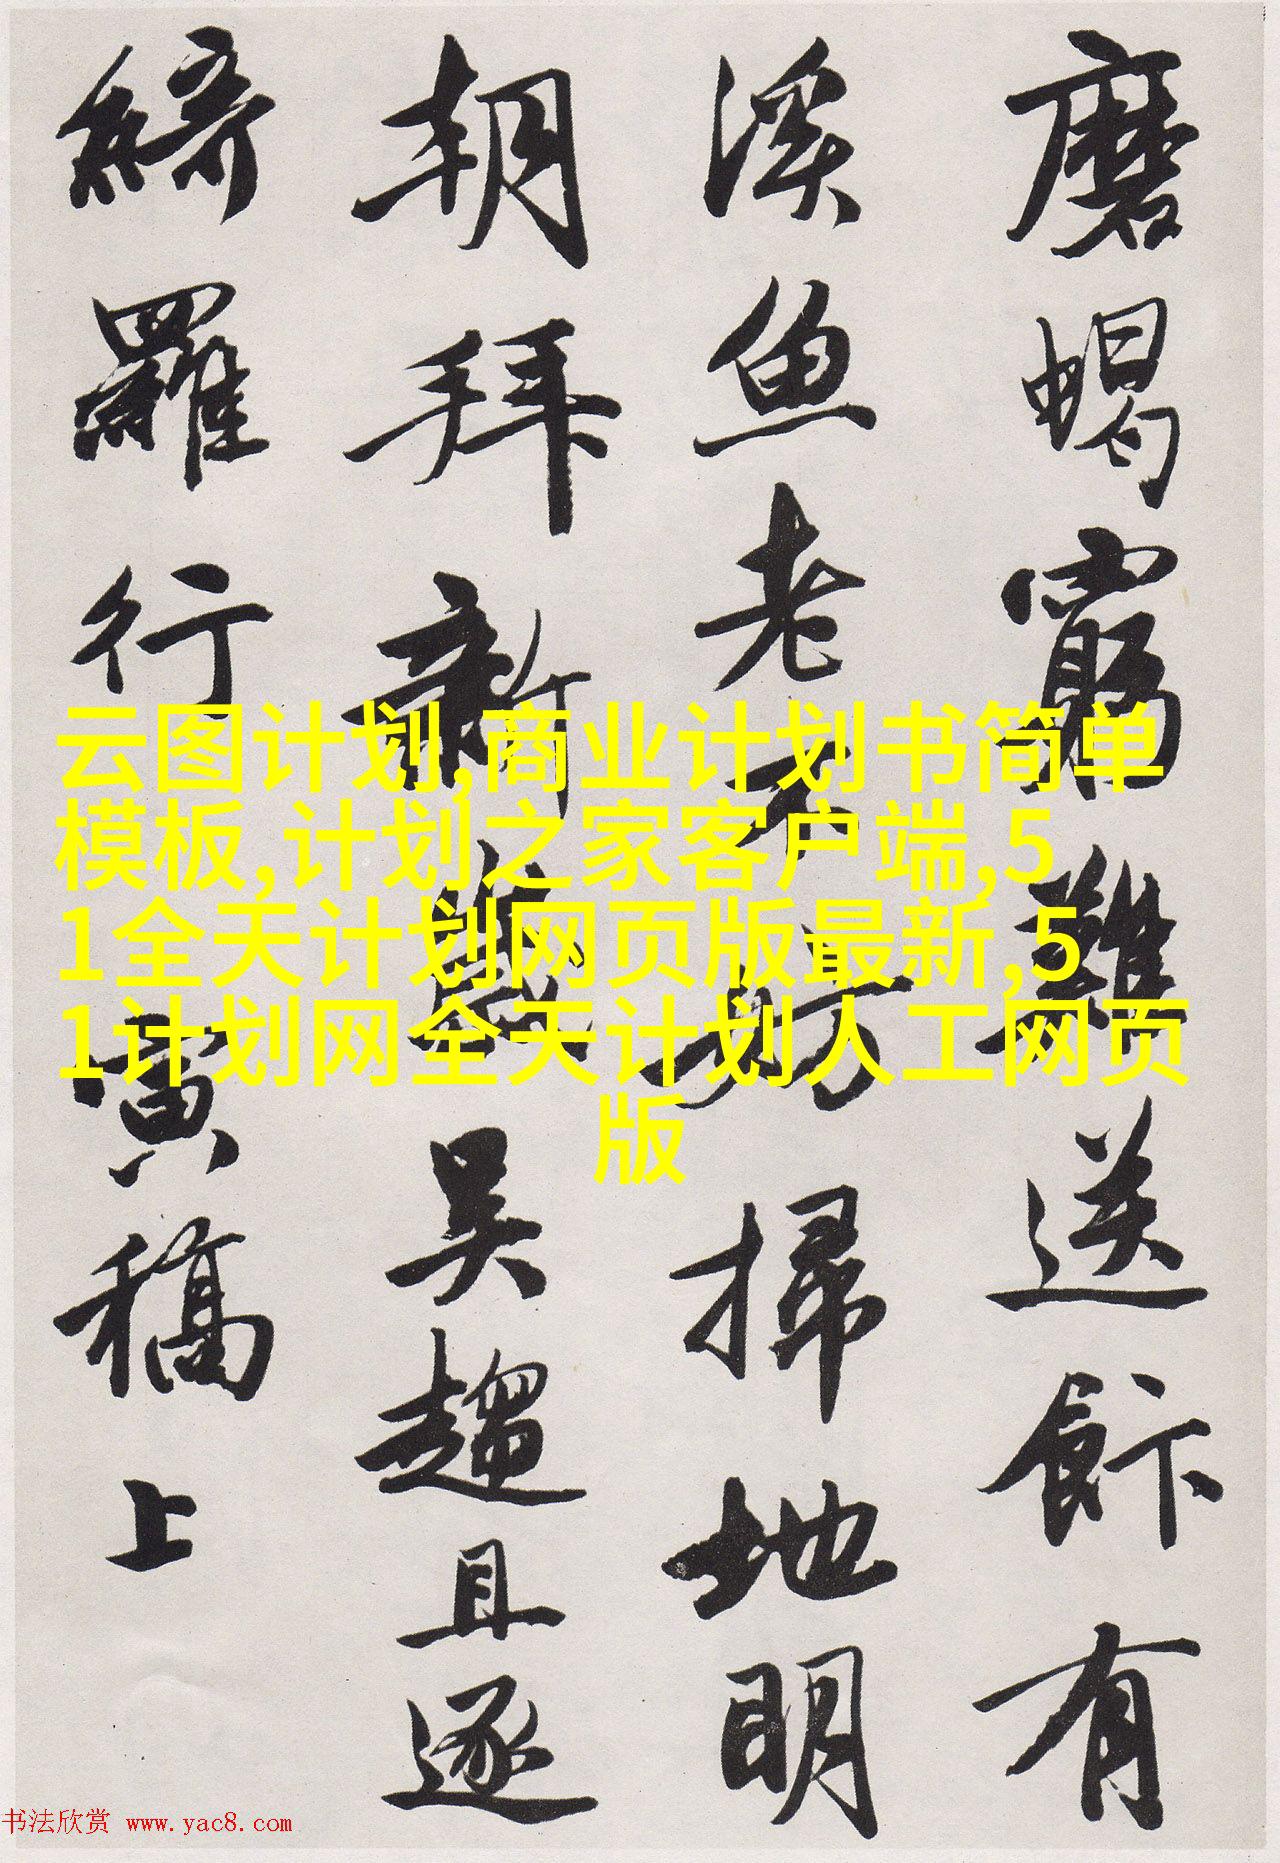 磨蝎窮難送飰有
溪鱼老不妨掃地明
朝拜新歲吴趨且逐
綺羅行 寅稿上
云图计划,商业计划书简单
模板,计划之家客户端,5
1全天计划网页版最新,5
1计划网全天计划人工网页
版
书法欣赏 www.yac8.com